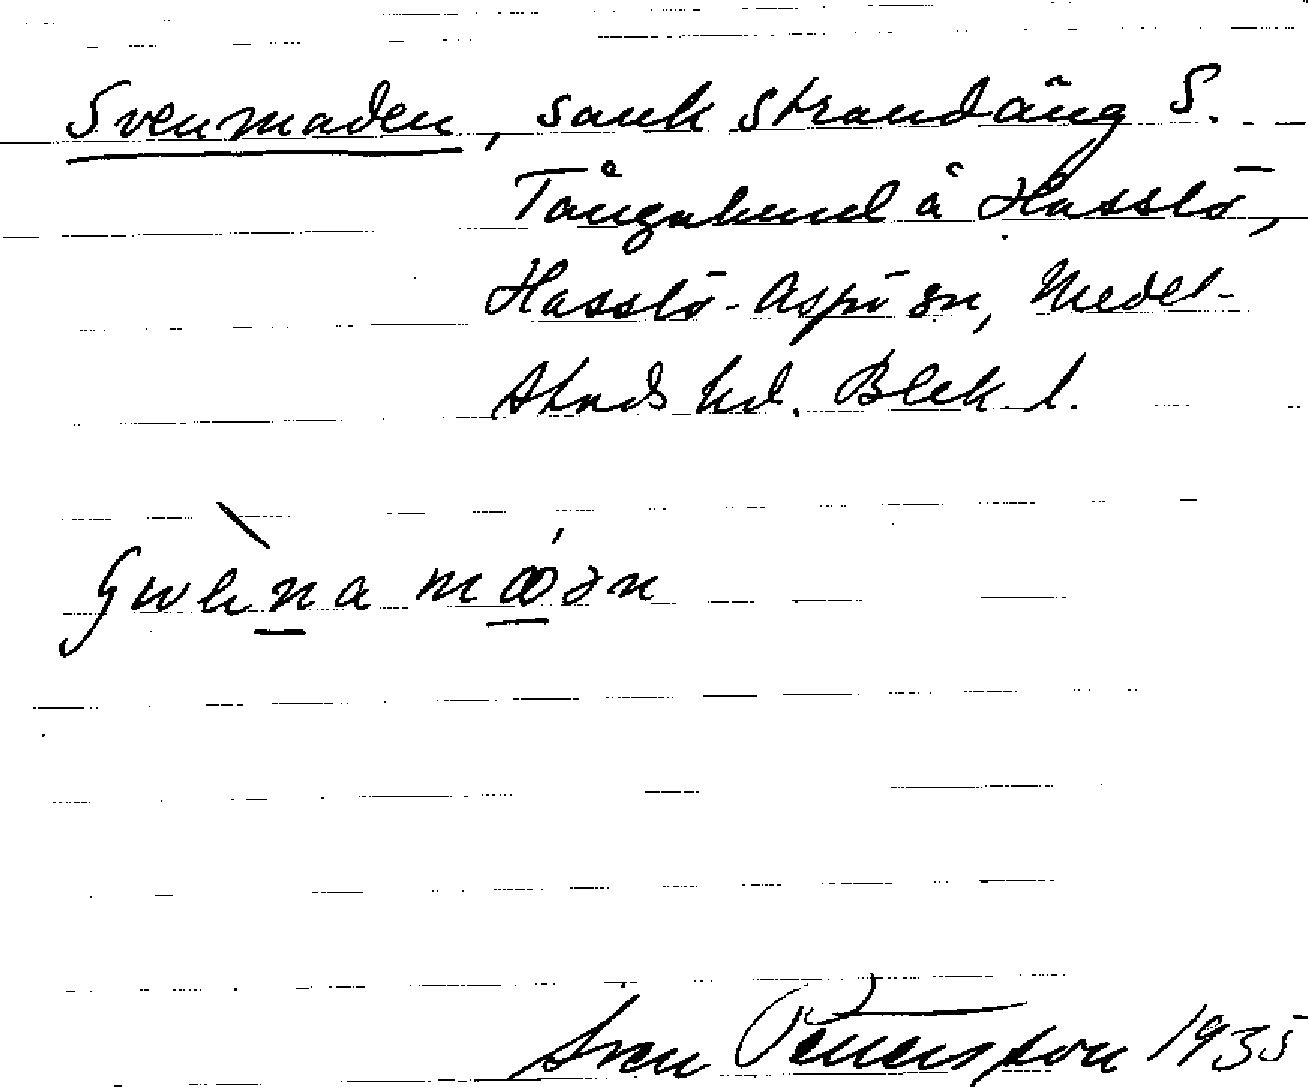 Svenmaden, sank strandäng S.
Tångahund å Hasslö,
Hasslö-Aspö sn, Medel-
stads hd. Blek. l.
Sven Petersson 1935